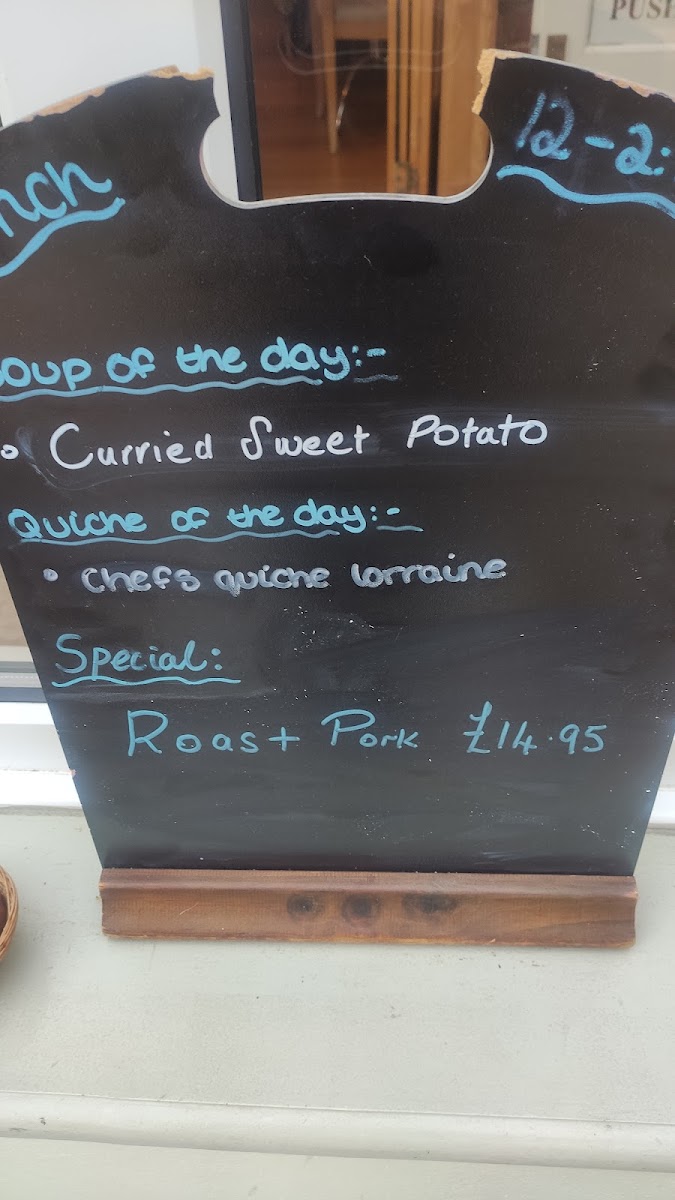 PUSH
nch 12-2:
Soup of the day:-
Curried Sweet Potato
Quiche of the day:-
Chefs quiche lorraine
Special:
Roast Pork £14.95